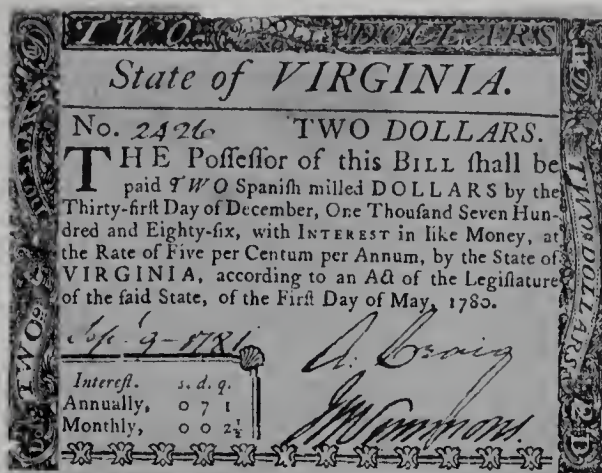 TWO DOLLARS
State of VIRGINIA.
No. 2426 TWO DOLLARS.
THE Poſſeſſor of this BILL ſhall be
paid TWO Spaniſh milled DOLLARS by the
Thirty-firſt Day of December, One Thouſand Seven Hun-
dred and Eighty-ſix, with INTEREST in like Money, at
the Rate of Five per Centum per Annum, by the State of
VIRGINIA, according to an Act of the Legiſlature
of the ſaid State, of the Firſt Day of May, 1780.
9-1781
A. Craig
Simmons.
Intereſt. s. d. q.
Annually, 0 7 1
Monthly, 0 0 2½
TWO DOLLARS. 2D
TWO